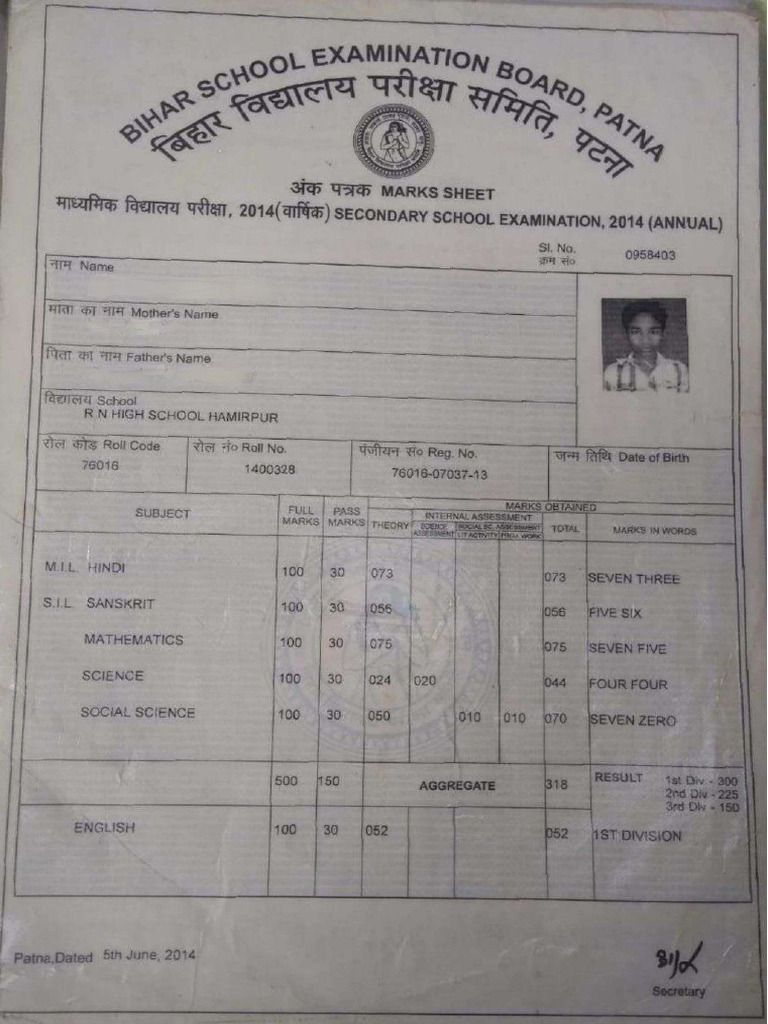 BIHAR SCHOOL EXAMINATION BOARD, PATNA
बिहार विद्यालय परीक्षा समिति, पटना
अंक पत्रक MARKS SHEET
माध्यमिक विद्यालय परीक्षा, 2014(वार्षिक) SECONDARY SCHOOL EXAMINATION, 2014 (ANNUAL)
Sl. No.
क्रम सं० 0958403
नाम Name
माता का नाम Mother's Name
पिता का नाम Father's Name
विद्यालय School
R N HIGH SCHOOL HAMIRPUR
रोल कोड Roll Code रोल नं० Roll No. पंजीयन सं० Reg. No. जन्म तिथि Date of Birth
76016 1400328 76016-07037-13
MARKS OBTAINED
SUBJECT FULL MARKS PASS MARKS THEORY INTERNAL ASSESSMENT TOTAL MARKS IN WORDS
SCIENCE ASSESSMENT SOCIAL SC. ASSESSMENT
LIT ACTIVITY PROJ. WORK
M.I.L. HINDI 100 30 073 073 SEVEN THREE
S.I.L. SANSKRIT 100 30 056 056 FIVE SIX
MATHEMATICS 100 30 075 075 SEVEN FIVE
SCIENCE 100 30 024 020 044 FOUR FOUR
SOCIAL SCIENCE 100 30 050 010 010 070 SEVEN ZERO
500 150 AGGREGATE 318 RESULT 1st Div - 300
2nd Div - 225
3rd Div - 150
ENGLISH 100 30 052 052 1ST DIVISION
Patna,Dated 5th June, 2014
Secretary